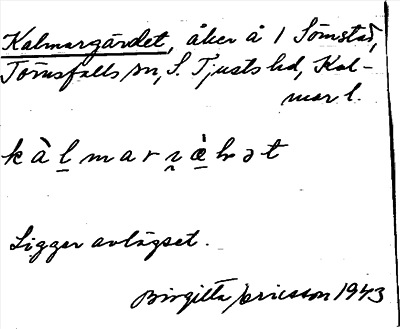 Kalmargärdet, åker å 1 Sömstad,
Törnsfalls sn, S. Tjusts hd, Kal-
mar l.
kàlmar
Ligger avlägset.
Birgitta Ericsson 1943